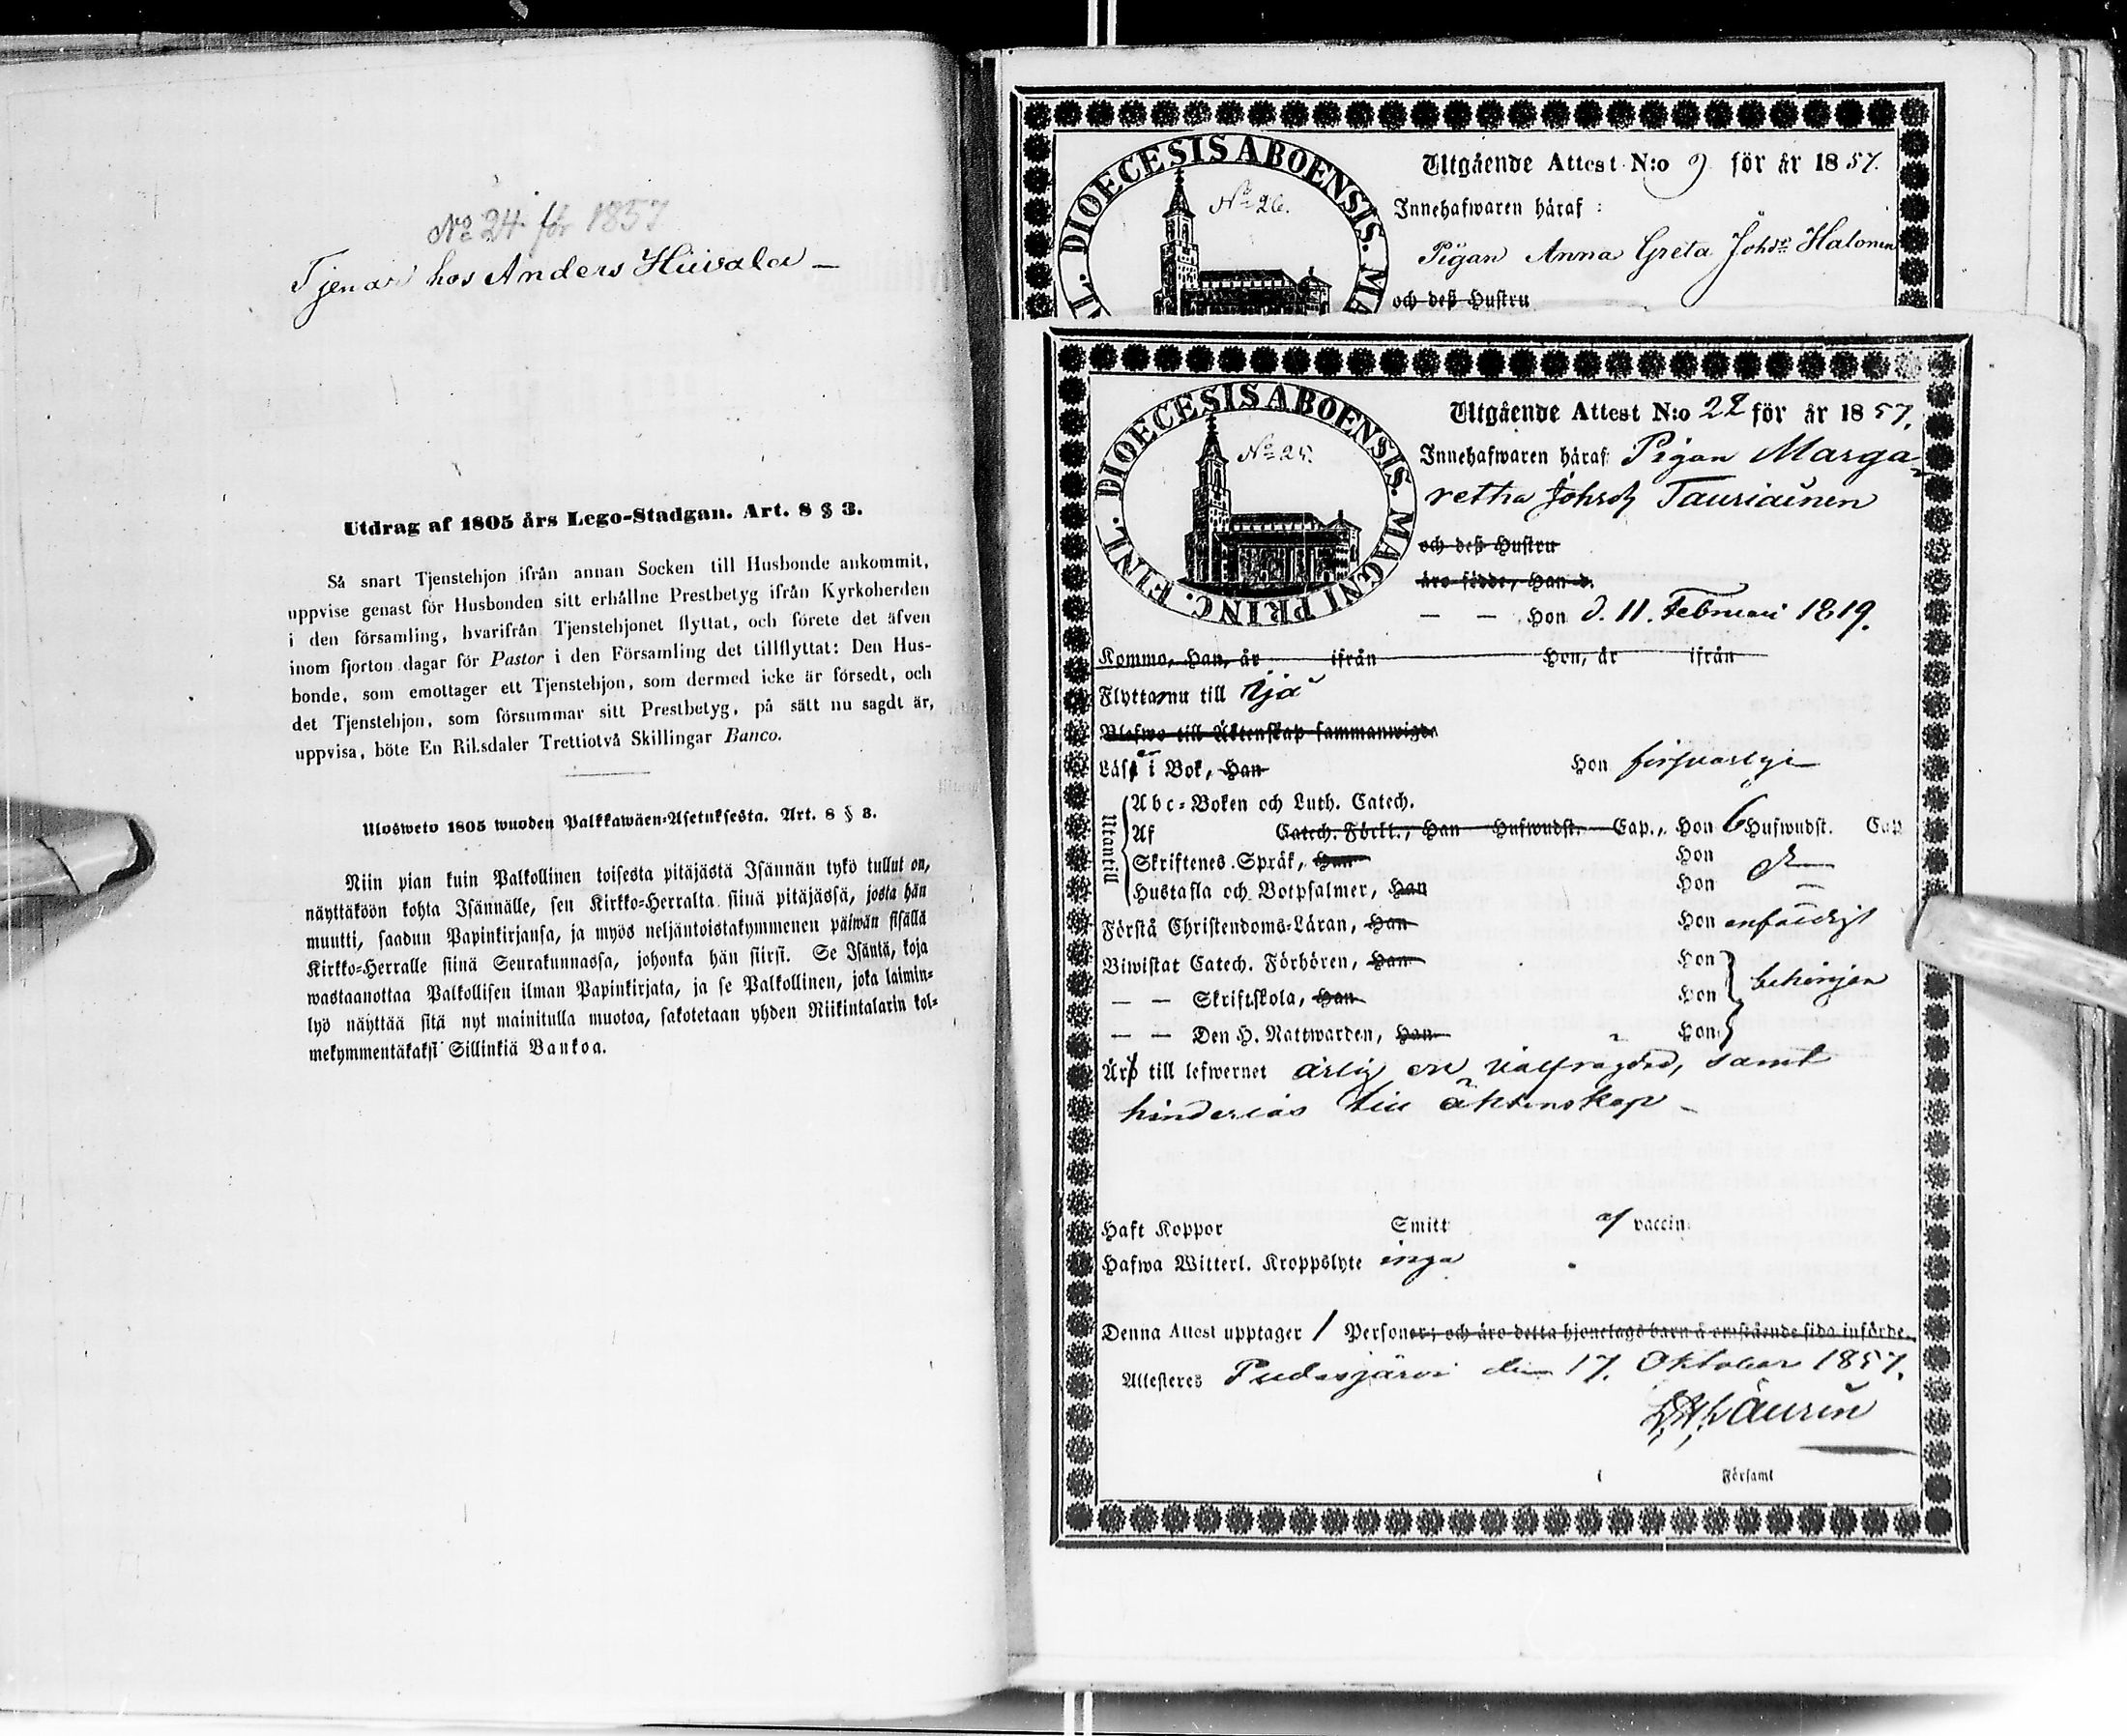 No 24 för 1857
Tjenar hos Anders Hiivala –
Utdrag af 1805 års Lego-Stadgan. Art. 8 § 3.
Så snart Tjenstehjon ifrån annan Socken till Husbonde ankommit,
uppvise genast för Husbonden sitt erhållne Prestbetyg ifrån Kyrkoherden
i den församling, hvarifrån Tjenstehjonet flyttat, och förete det äfven
inom fjorton dagar för Pastor i den Församling det tillflyttat: Den Hus-
bonde, som emottager ett Tjenstehjon, som dermed icke är försedt, och
det Tjenstehjon, som försummar sitt Prestbetyg, på sätt nu sagdt är,
uppvisa, böte En Riksdaler Trettiotvå Skillingar Banco.
Ulosweto 1805 wuoden Palkkawäen-Asetuksesta. Art. 8 § 3.
Niin pian kuin Palkollinen toisesta pitäjästä Isännän tykö tullut on,
näyttäköön kohta Isännälle, sen Kirkko-Herralta siinä pitäjässä, josta hän
muutti, saadun Papinkirjansa, ja myös neljäntoistakymmenen päiwän sisällä
Kirkko-Herralle siinä Seurakunnassa, johonka hän siirsi. Se Isäntä, koja
wastaanottaa Palkollisen ilman Papinkirjata, ja se Palkollinen, joka laimin-
lyö näyttää sitä nyt mainitulla muotoa, sakotetaan yhden Riikintalarin kol-
mekymmentäkaksi Sillinkiä Bankoa.
DIOECESIS ABOENSIS.
No 26.
Utgående Attest N:o 9 för år 1857.
Innehafwaren häraf:
Pigan Anna Greta Johdr Halonen
och deß Hustru
DIOECESIS ABOENSIS. MAGNI PRINC. FINL.
No 25.
Utgående Attest N:o 22 för år 1857.
Innehafwaren häraf: Pigan Marga-
retha Johsdr Tauriainen
och deß Hustru
äro födde, Han d.
— — Hon d. 11. Februari 1819.
Kommo, Han, år ifrån Hon, år ifrån
Flyttar nu till Ijå
Blefwo till Äktenskap sammanwigde
Läser i Bok, Han Hon försvarlgt
Utantill
Abc-Boken och Luth. Catech.
Af Catech. Förkl., Han Hufwudst. Cap., Hon 6 Hufwudst. Cap
Skriftenes Språk, Han Hon
Hustafla och Botpsalmer, Han Hon —
Förstå Christendoms-Läran, Han Hon enfäldigt
Biwistat Catech. Förhören, Han Hon
— — Skriftskola, Han Hon behörigen
— — Den H. Nattwarden, Han Hon
Är till lefwernet ärlig och välfrägdad, samt
hinderlös till äktenskap –
Haft Koppor Smitt af vaccin.
Hafwa Witterl. Kroppslyte inga
Denna Attest upptager 1 Personer; och äro detta hjonelags barn å omstående sida införde.
Attesteras Pudasjärvi den 17. Oktober 1857.
Laurin
i Församl